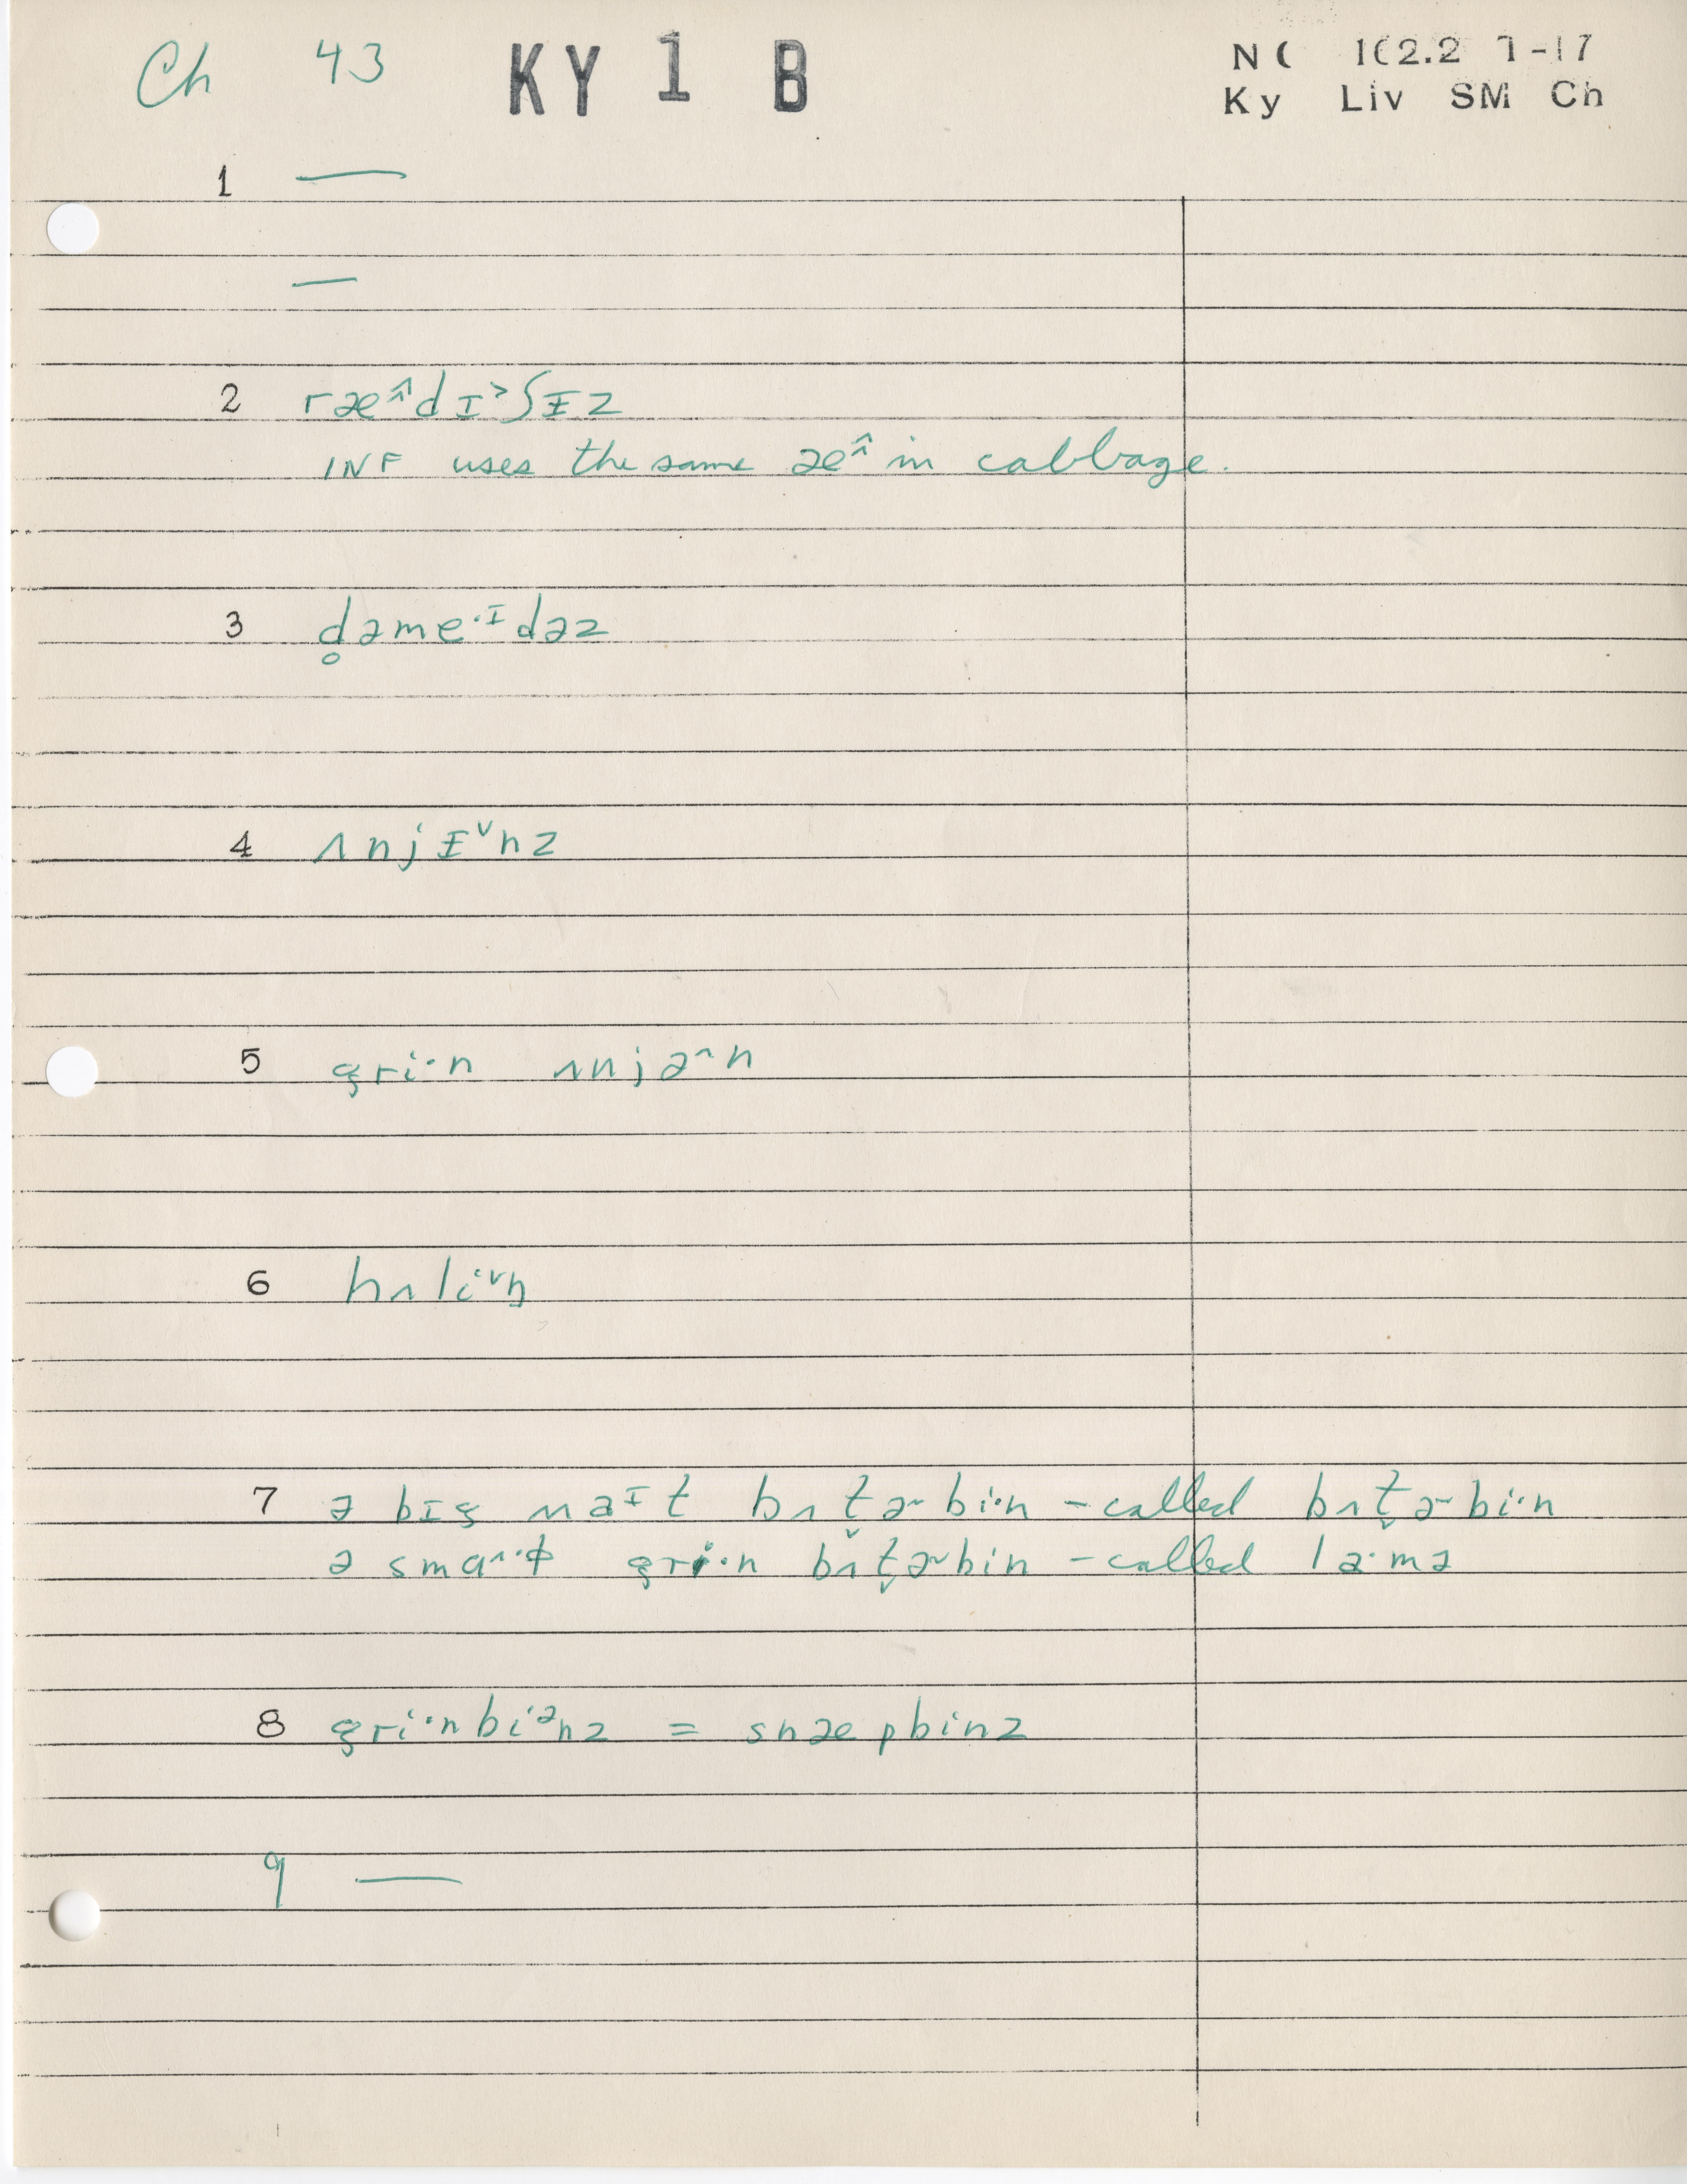 Ch 43 KY 1 B
N( 1(2.2 1-17
Ky Liv SM Ch
1 —
—
2 ræ^dɪ˃ʃɪ̵z
INF uses the same æ^ in cabbage.
3 d̥əme·ɪdəz
4 ʌnjɪ̵ˇnz
5 gri·n ʌnjə^n
6 hʌli·ˇŋ
7 ə bɪg ʍaɪt bʌt̬ɚbi·n – called bʌt̬ɚbi·n
ə smɑ^·ɫ gri·n bʌt̬ɚbin – called la·mə
8 gri·nbiᵊnz = snæpbinz
9 —